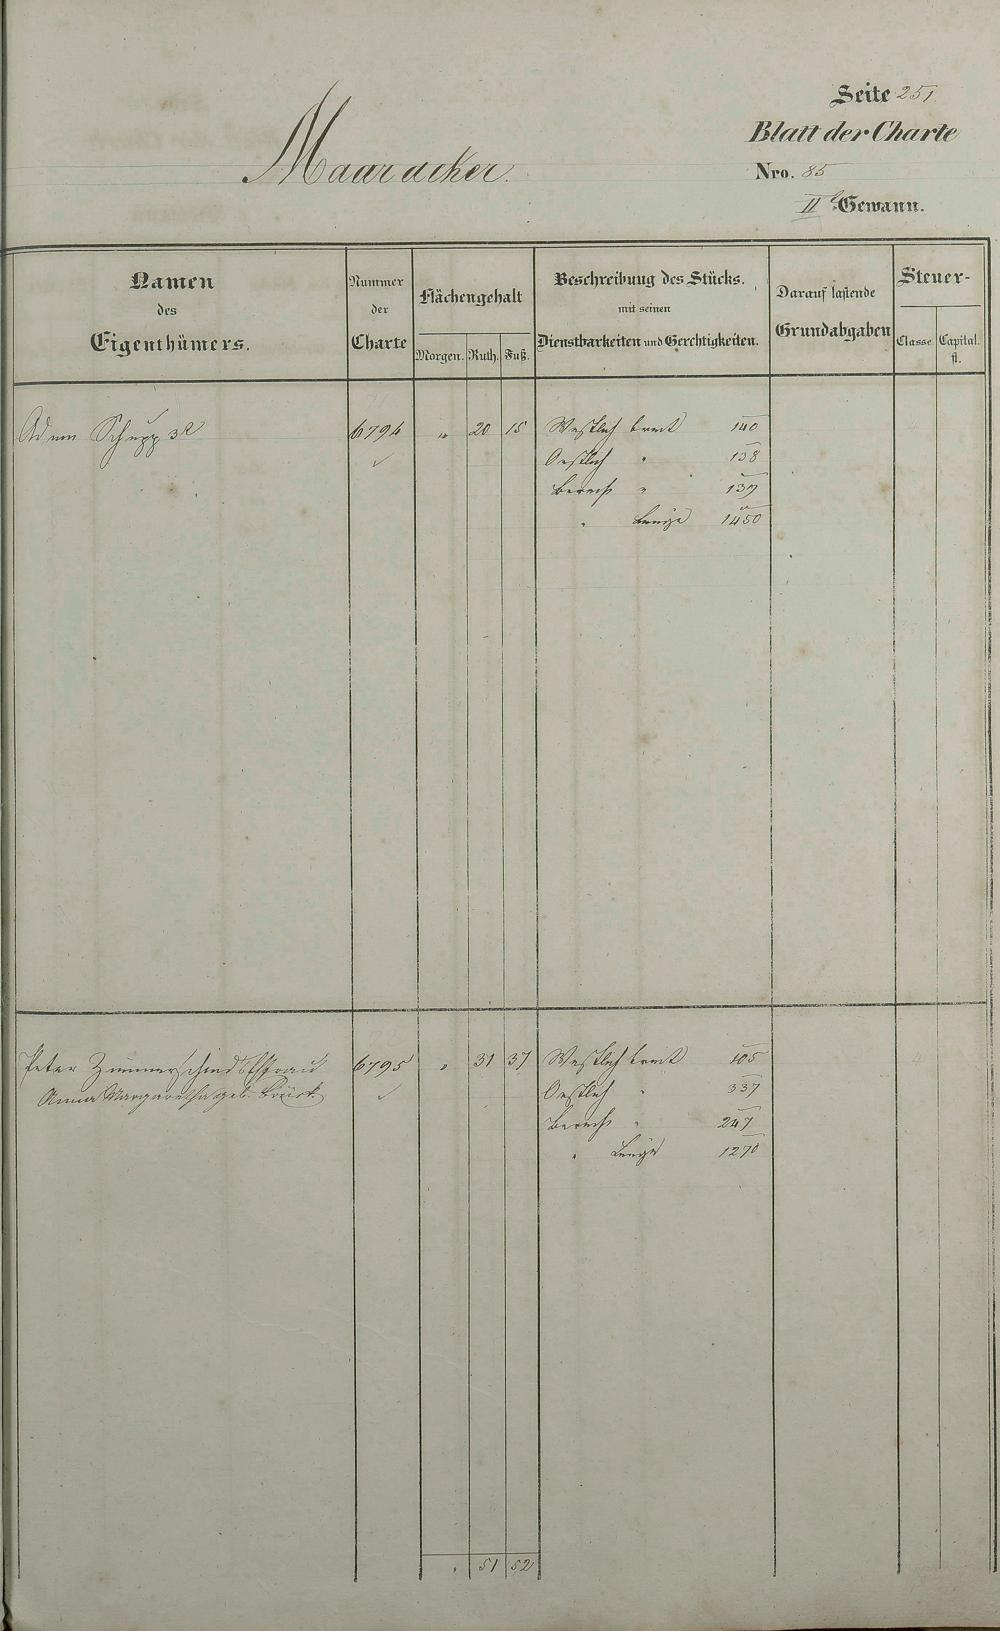 Seite 251
Blatt der Charte
Maaracker.
Nro. 85
II. Gewann.
Namen
des
Eigenthümers.
Nummer
der
Charte
Flächengehalt
Morgen. Ruth. Fuß.
Beschreibung des Stücks.
mit seinen
Dienstbarkeiten und Gerechtigkeiten.
Darauf lastende
Grundabgaben
Steuer-
Classe. Capital.
fl.
Adam Schupp 3r 6794 " 20 15 Westlich breit 140
Oestlich " 138
Berech " 139
" Länge 1450
Peter Zimmerschieds Ehfrau 6795 " 31 37 Westlich breit 105
Anna Margaretha geb. Brück Oestlich " 337
Berech " 247
" Länge 1270
" 51 52